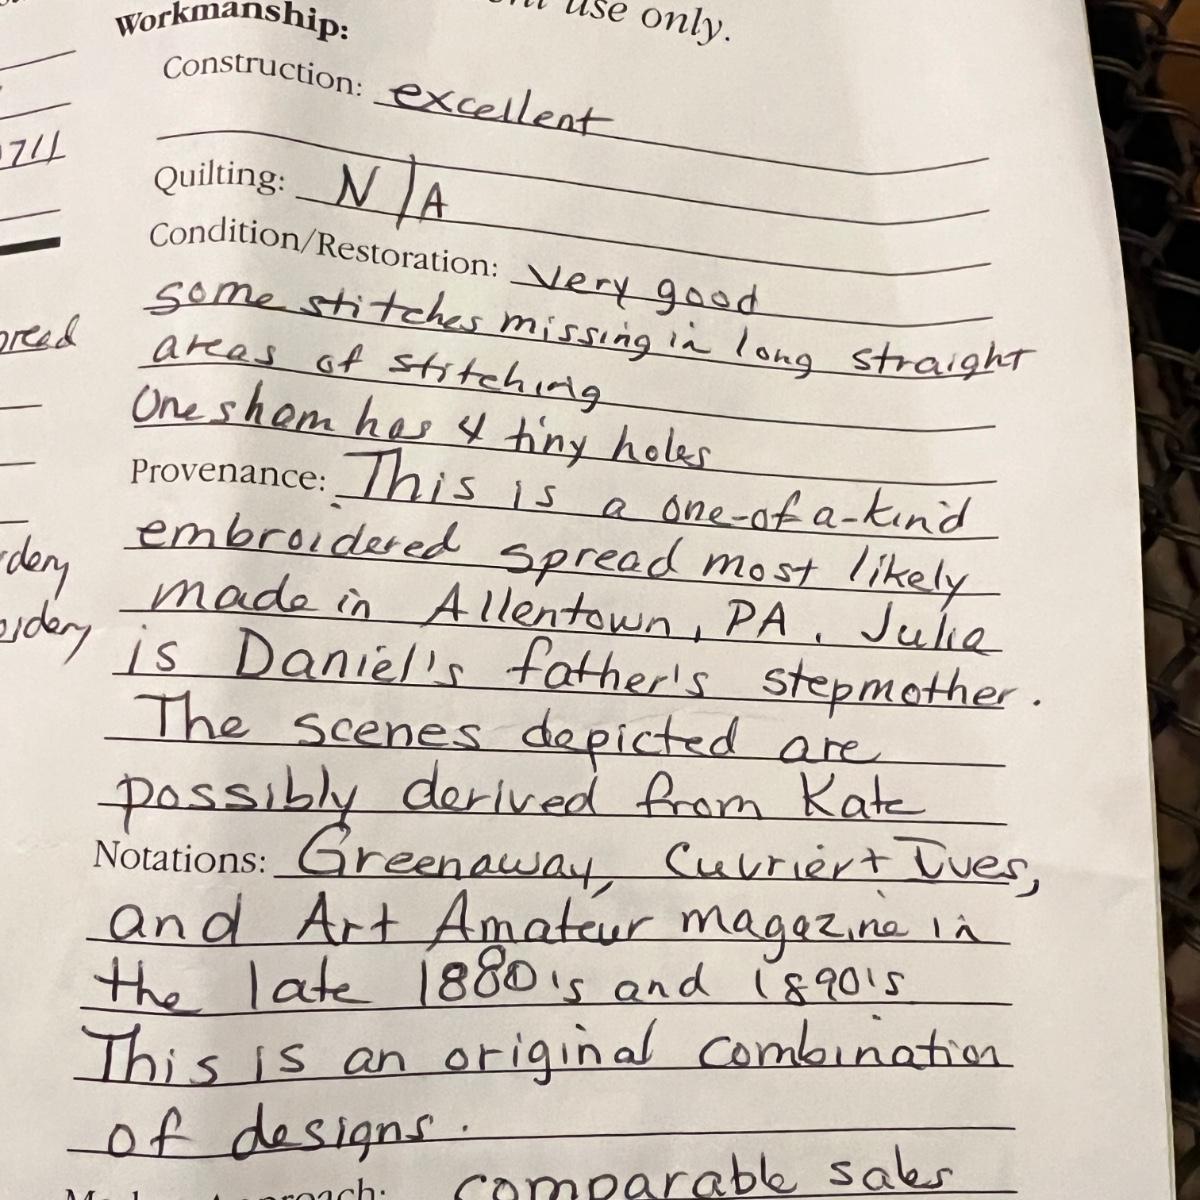 use only.
Workmanship:
Construction: excellent
711
Quilting: N/A
Condition/Restoration: very good
some stitches missing in long straight
areas of stitching
One sham has 4 tiny holes
Provenance: This is a one-of a-kind
embroidered spread most likely
made in Allentown, PA. Julia
is Daniel's father's stepmother.
The scenes depicted are
possibly derived from Kate
Notations: Greenaway, Currier + Ives,
and Art Amateur magazine in
the late 1880's and 1890's
This is an original combination
of designs.
comparable sales